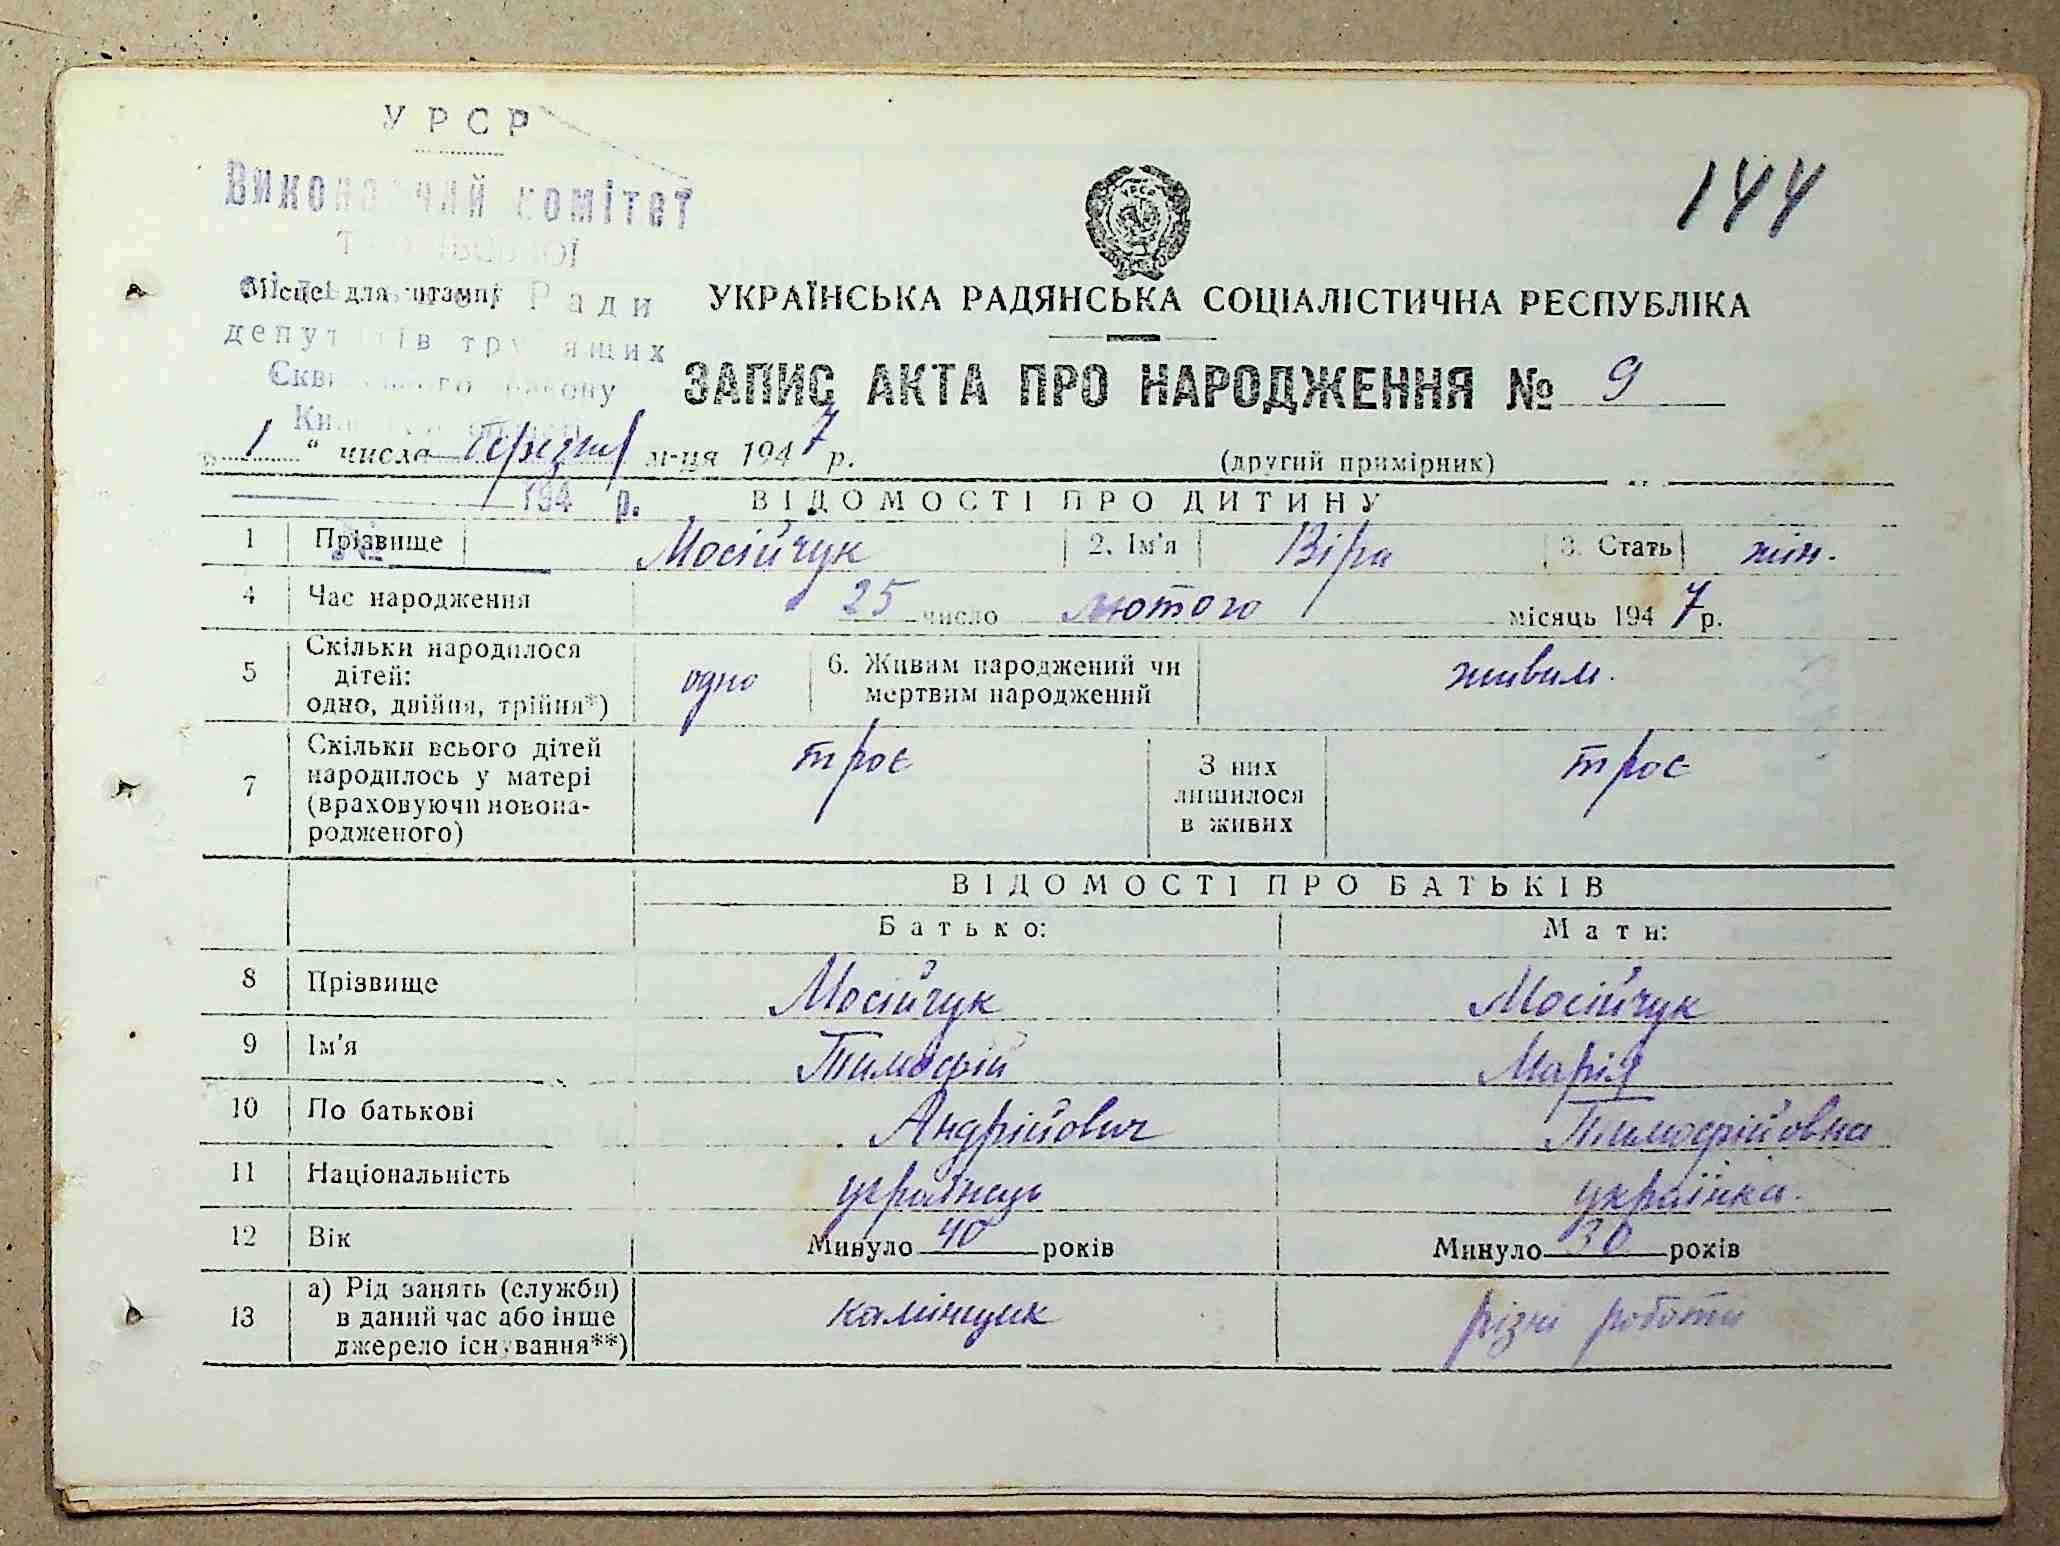 УРСР
Виконавчий комітет
144
УРСР
Місце для штампу
Ради
УКРАЇНСЬКА РАДЯНСЬКА СОЦІАЛІСТИЧНА РЕСПУБЛІКА
депутатів трудящих
Сквирського району
ЗАПИС АКТА ПРО НАРОДЖЕННЯ № 9
„ 1 “ числа Березня м-ця 1947 р.
(другий примірник)
194 р.
ВІДОМОСТІ ПРО ДИТИНУ
1 Прізвище Мосійчук 2. Ім'я Віра 3. Стать жін.
4 Час народження 25 число лютого місяць 1947 р.
5 Скільки народилося дітей: одно, двійня, трійня*) одно 6. Живим народжений чи мертвим народжений живим.
7 Скільки всього дітей народилось у матері (враховуючи новонародженого) троє З них лишилося в живих троє
ВІДОМОСТІ ПРО БАТЬКІВ
Батько: Мати:
8 Прізвище Мосійчук Мосійчук
9 Ім'я Тимофій Марія
10 По батькові Андрійович Тимофійовна
11 Національність українець українка.
12 Вік Минуло 40 років Минуло 30 років
13 а) Рід занять (служби) в даний час або інше джерело існування**) камінщик різні роботи